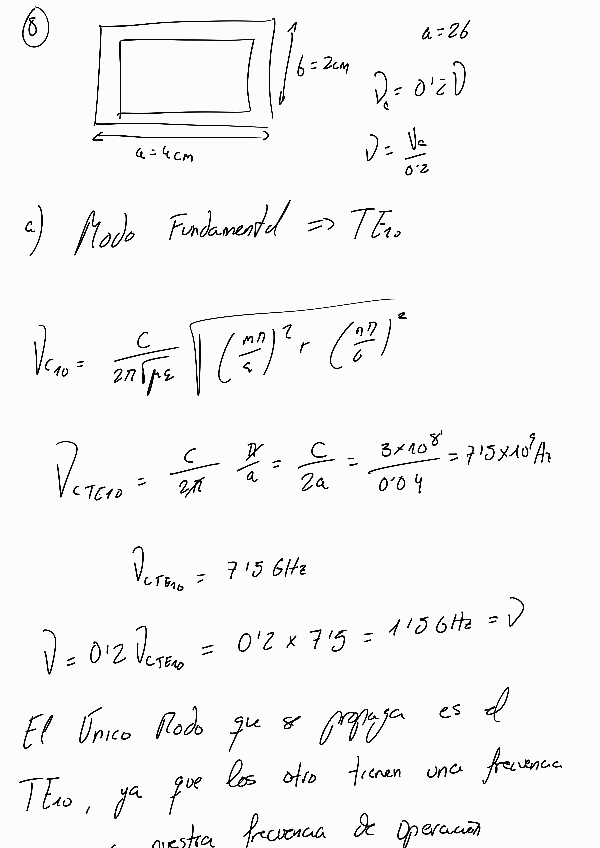 8
a = 2b
b = 2cm
ν_c = 0'2 ν
ν = ν_c / 0'2
a = 4cm
a) Modo Fundamental ⇒ TE₁₀
ν_C10 = C / (2π√με) √((mπ/a)² + (nπ/b)²)
ν_CTE10 = C/2π π/a = C/2a = 3×10⁸ / 0'04 = 7'5×10⁹ Hz
ν_CTE10 = 7'5 GHz
ν = 0'2 ν_CTE10 = 0'2 × 7'5 = 1'5 GHz = ν
El Único Modo que se propaga es el
TE₁₀, ya que los otro tienen una frecuencia
nuestra frecuencia de operación